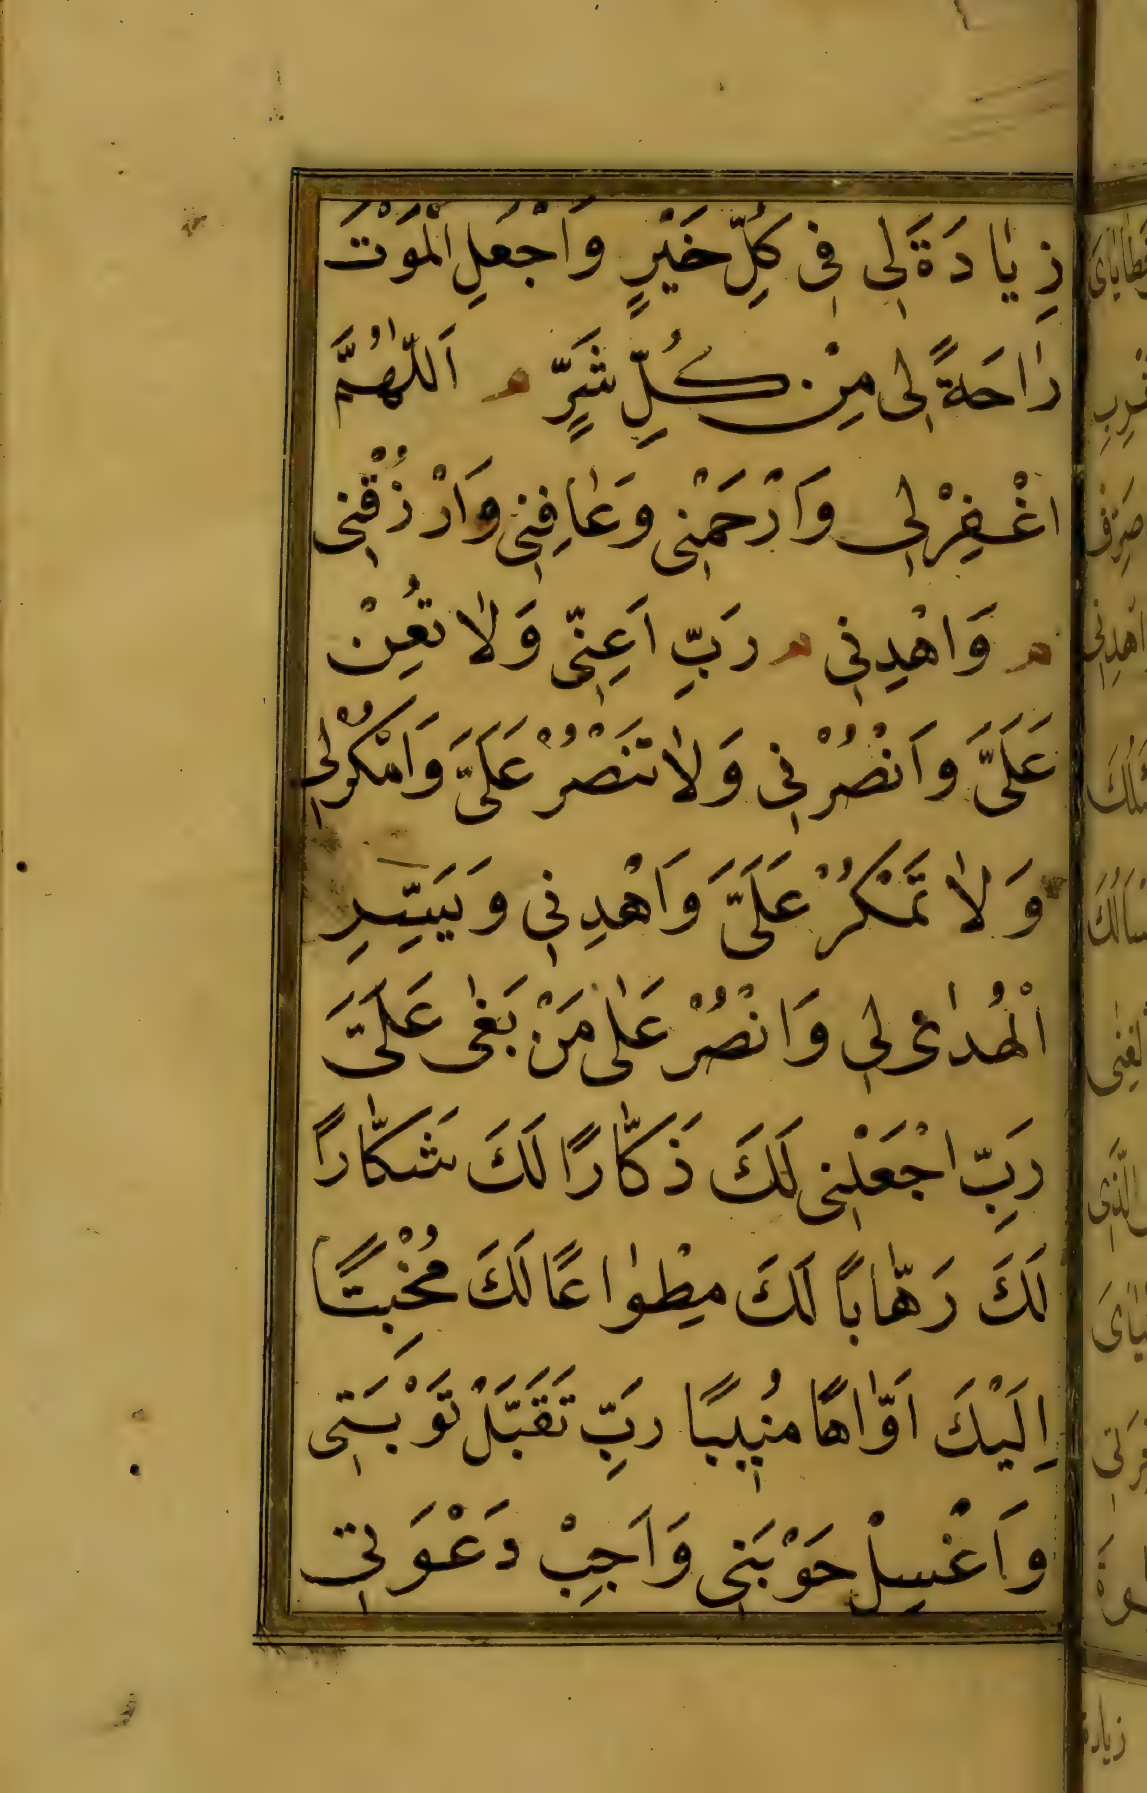 زِيَادَةً لِي فِي كُلِّ خَيْرٍ وَاجْعَلِ الْمَوْتَ
رَاحَةً لِي مِنْ كُلِّ شَرٍّ م اَللّٰهُمَّ
اغْفِرْ لِي وَارْحَمْنِي وَعَافِنِي وَارْزُقْنِي
م وَاهْدِنِي م رَبِّ اَعِنِّي وَلَا تُعِنْ
عَلَيَّ وَانْصُرْنِي وَلَا تَنْصُرْ عَلَيَّ وَامْكُرْ لِي
وَلَا تَمْكُرْ عَلَيَّ وَاهْدِنِي وَيَسِّرِ
الْهُدَى لِي وَانْصُرْ عَلَى مَنْ بَغَى عَلَيَّ
رَبِّ اجْعَلْنِي لَكَ ذَكَّارًا لَكَ شَكَّارًا
لَكَ رَهَّابًا لَكَ مِطْوَاعًا لَكَ مُخْبِتًا
اِلَيْكَ اَوَّاهًا مُنِيبًا رَبِّ تَقَبَّلْ تَوْبَتِي
وَاغْسِلْ حَوْبَتِي وَاَجِبْ دَعْوَتِي
زيادة